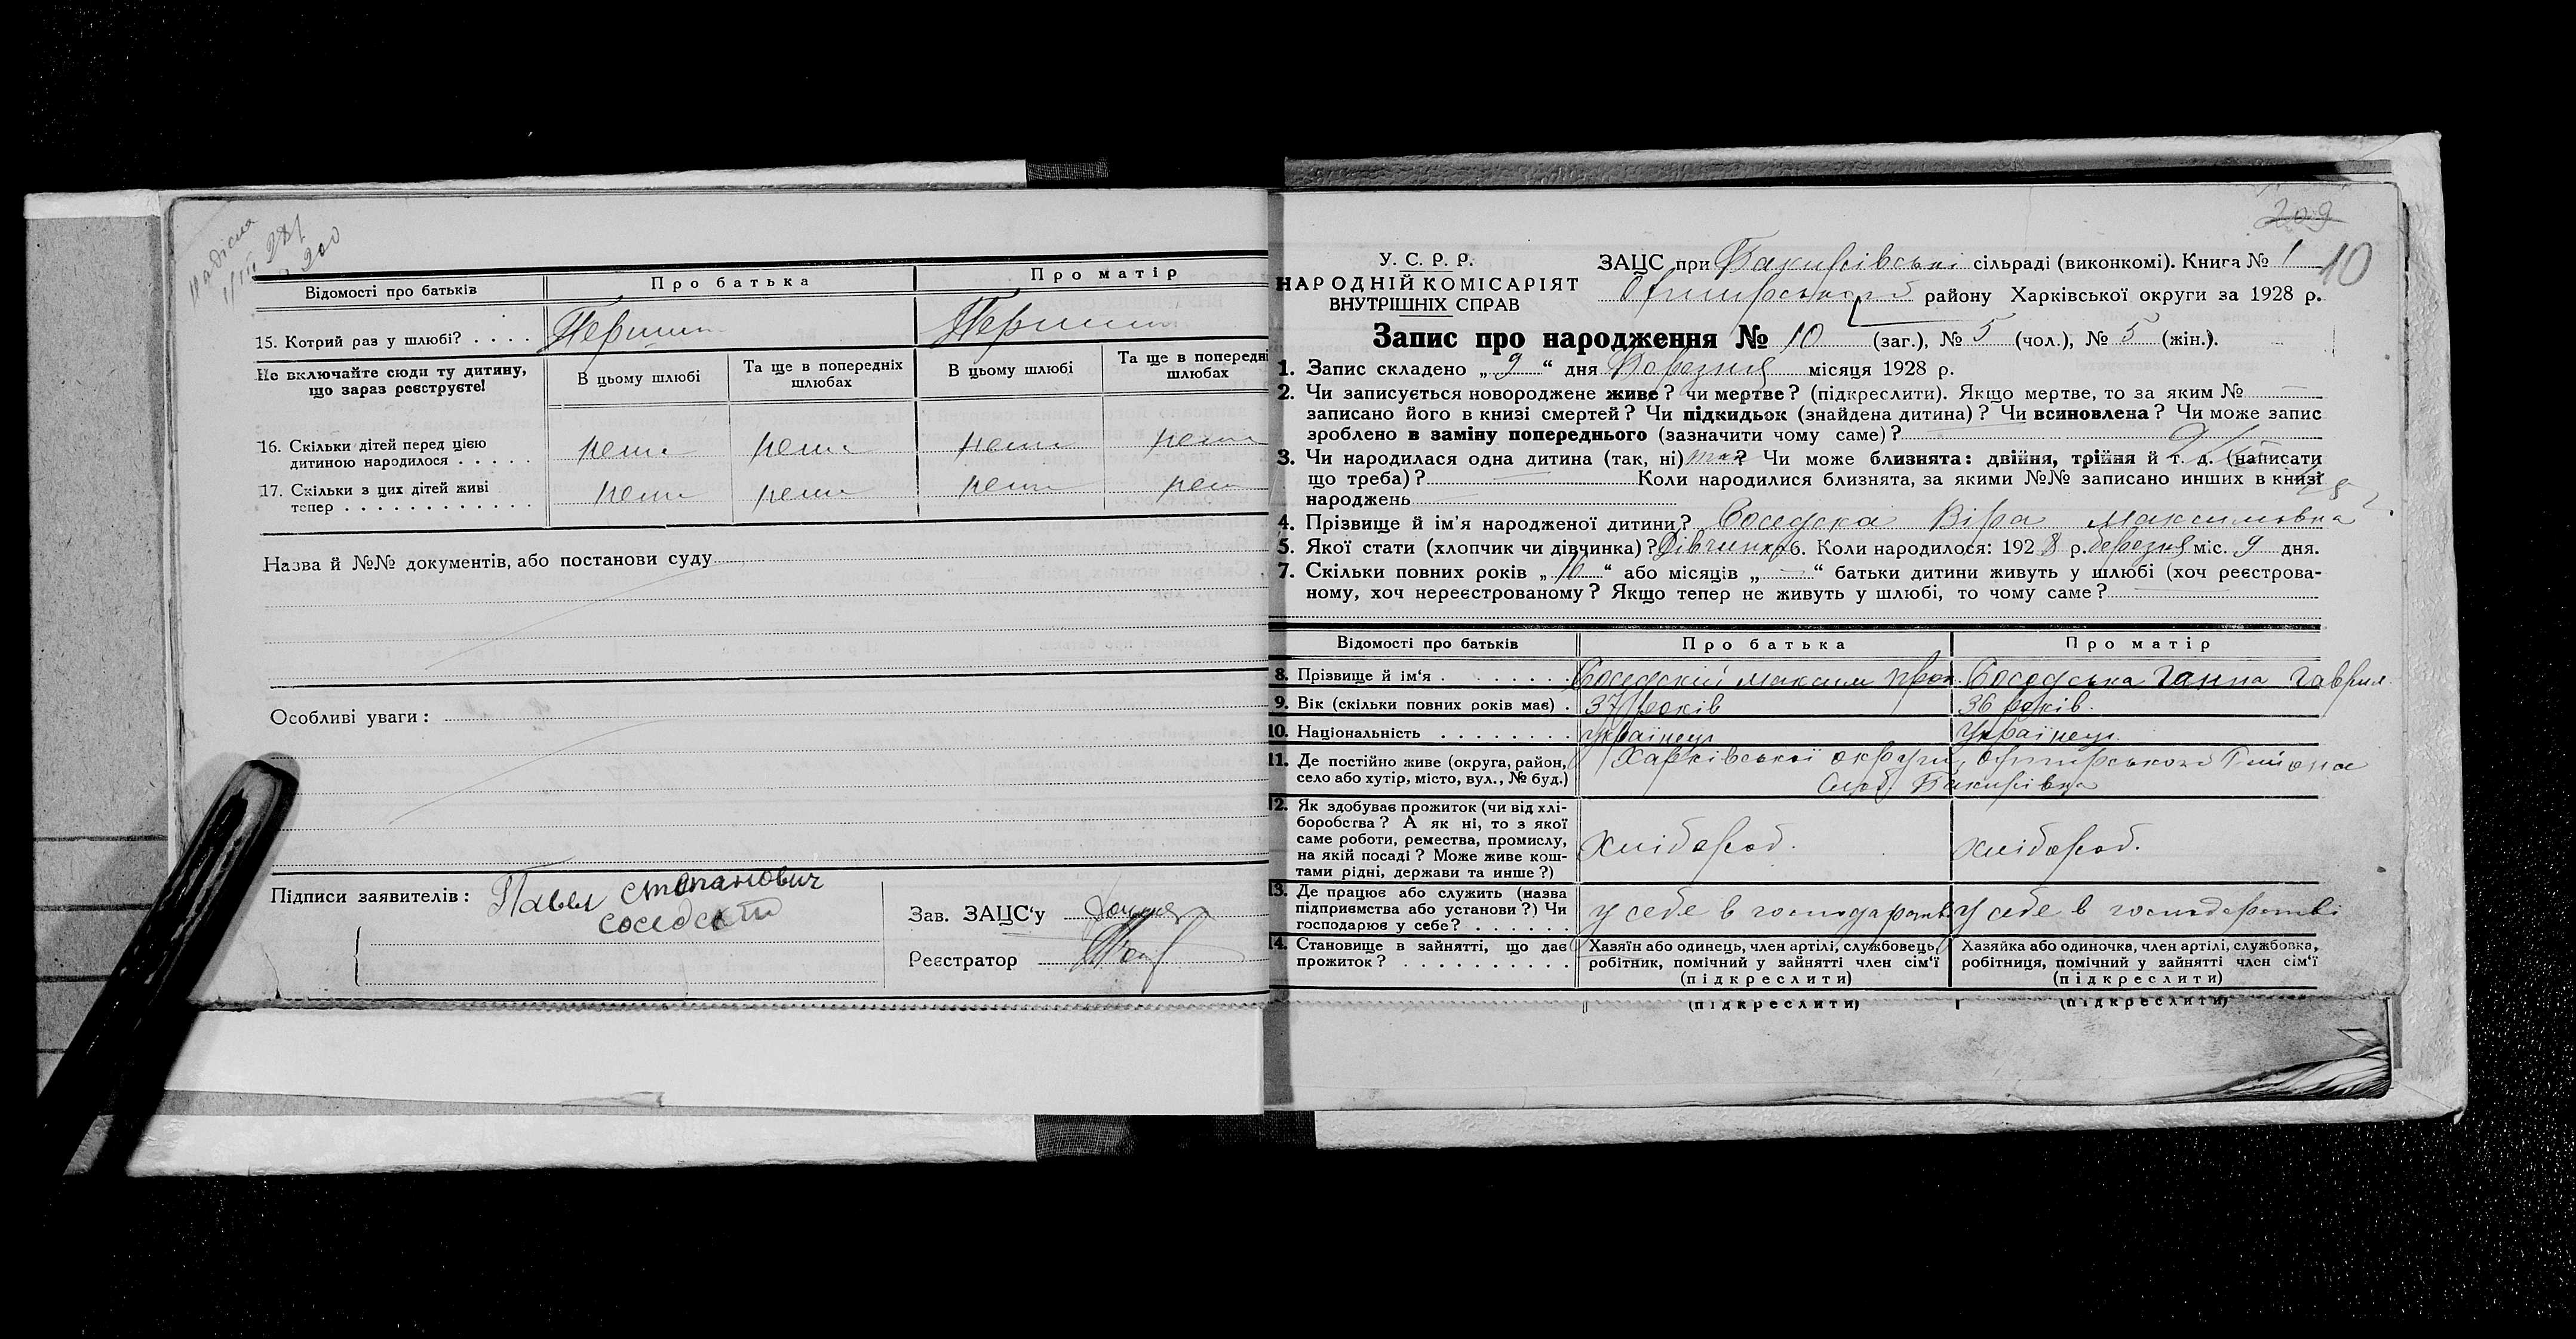 надіслa
1/III 28 р
200
Відомості про батьків
Про батька
Про матір
15. Котрий раз у шлюбі? . . . .
Перший
Перший
Не включайте сюди ту дитину, що зараз реєструєте!
В цьому шлюбі
Та ще в попередніх шлюбах
В цьому шлюбі
Та ще в попередні шлюбах
16. Скільки дітей перед цією
дитиною народилося . . . . .
нема нема нема нема
17. Скільки з цих дітей живі
тепер . . . . . . . . . . . .
нема нема нема нема
Назва й №№ документів, або постанови суду
Особливі уваги:
Підписи заявителів: Павел степанович
соседский
Зав. ЗАЦС'у
Реєстратор
209
10
У. С. Р. Р.
НАРОДНІЙ КОМІСАРІЯТ
ВНУТРІШНІХ СПРАВ
ЗАЦС при Бакирівські сільраді (виконкомі). Книга № 1
Охтирського району Харківської округи за 1928 р.
Запис про народження № 10 (заг.), № 5 (чол.), № 5 (жін.).
1. Запис складено „ 9 “ дня Березня місяця 1928 р.
2. Чи записується новороджене живе? чи мертве? (підкреслити). Якщо мертве, то за яким № —
записано його в книзі смертей? Чи підкидьок (знайдена дитина)? Чи всиновлена? Чи може запис
зроблено в заміну попереднього (зазначити чому саме)?
3. Чи народилася одна дитина (так, ні) так? Чи може близнята: двійня, трійня й т. д. (написати
що треба)? — Коли народилися близнята, за якими №№ записано инших в книзі
народжень
4. Прізвище й ім'я народженої дитини? Соседска Віра Максимовна
5. Якої стати (хлопчик чи дівчинка)? Дівчинка 6. Коли народилося: 1928 р. березня міс. 9 дня.
7. Скільки повних років „ 10 “ або місяців „ — “ батьки дитини живуть у шлюбі (хоч реєстрова-
ному, хоч нереєстрованому? Якщо тепер не живуть у шлюбі, то чому саме?
Відомості про батьків
Про батька
Про матір
8. Прізвище й ім'я . . . . . . .
Соседский Максим Прок.
Соседська Ганна Гаврил.
9. Вік (скільки повних років має) .
37 років
36 років.
10. Національність . . . . . . . .
Українець
Українец
11. Де постійно живе (округа, район,
село або хутір, місто, вул., № буд.)
Харківської округи, Охтирського Района
Слоб. Бакирівка
12. Як здобуває прожиток (чи від хлі-
боробства? А як ні, то з якої
саме роботи, ремества, промислу,
на якій посаді? Може живе кош-
тами рідні, держави та инше?)
хлібороб.
хлібороб.
13. Де працює або служить (назва
підприємства або установи?) Чи
господарює у себе? . . . . . .
у себе в господарстві
у себе в господарстві
14. Становище в зайнятті, що дає
прожиток? . . . . . . . . . .
Хазяїн або одинець, член артілі, службовець,
робітник, помічний у зайнятті член сім'ї
(підкреслити)
Хазяйка або одиночка, член артілі, службовка,
робітниця, помічний у зайнятті член сім'ї
(підкреслити)
(підкреслити)
(підкреслити)